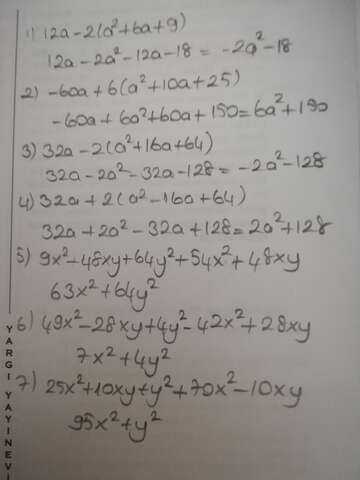 1) 12a-2(a²+6a+9)
12a-2a²-12a-18 = -2a²-18
2) -60a+6(a²+10a+25)
-60a+6a²+60a+150=6a²+150
3) 32a-2(a²+16a+64)
32a-2a²-32a-128=-2a²-128
4) 32a+2(a²-16a+64)
32a+2a²-32a+128=2a²+128
5) 9x²-48xy+64y²+54x²+48xy
63x²+64y²
6) 49x²-28xy+4y²-42x²+28xy
7x²+4y²
7) 25x²+10xy+y²+70x²-10xy
95x²+y²
YARGI YAYINEVİ